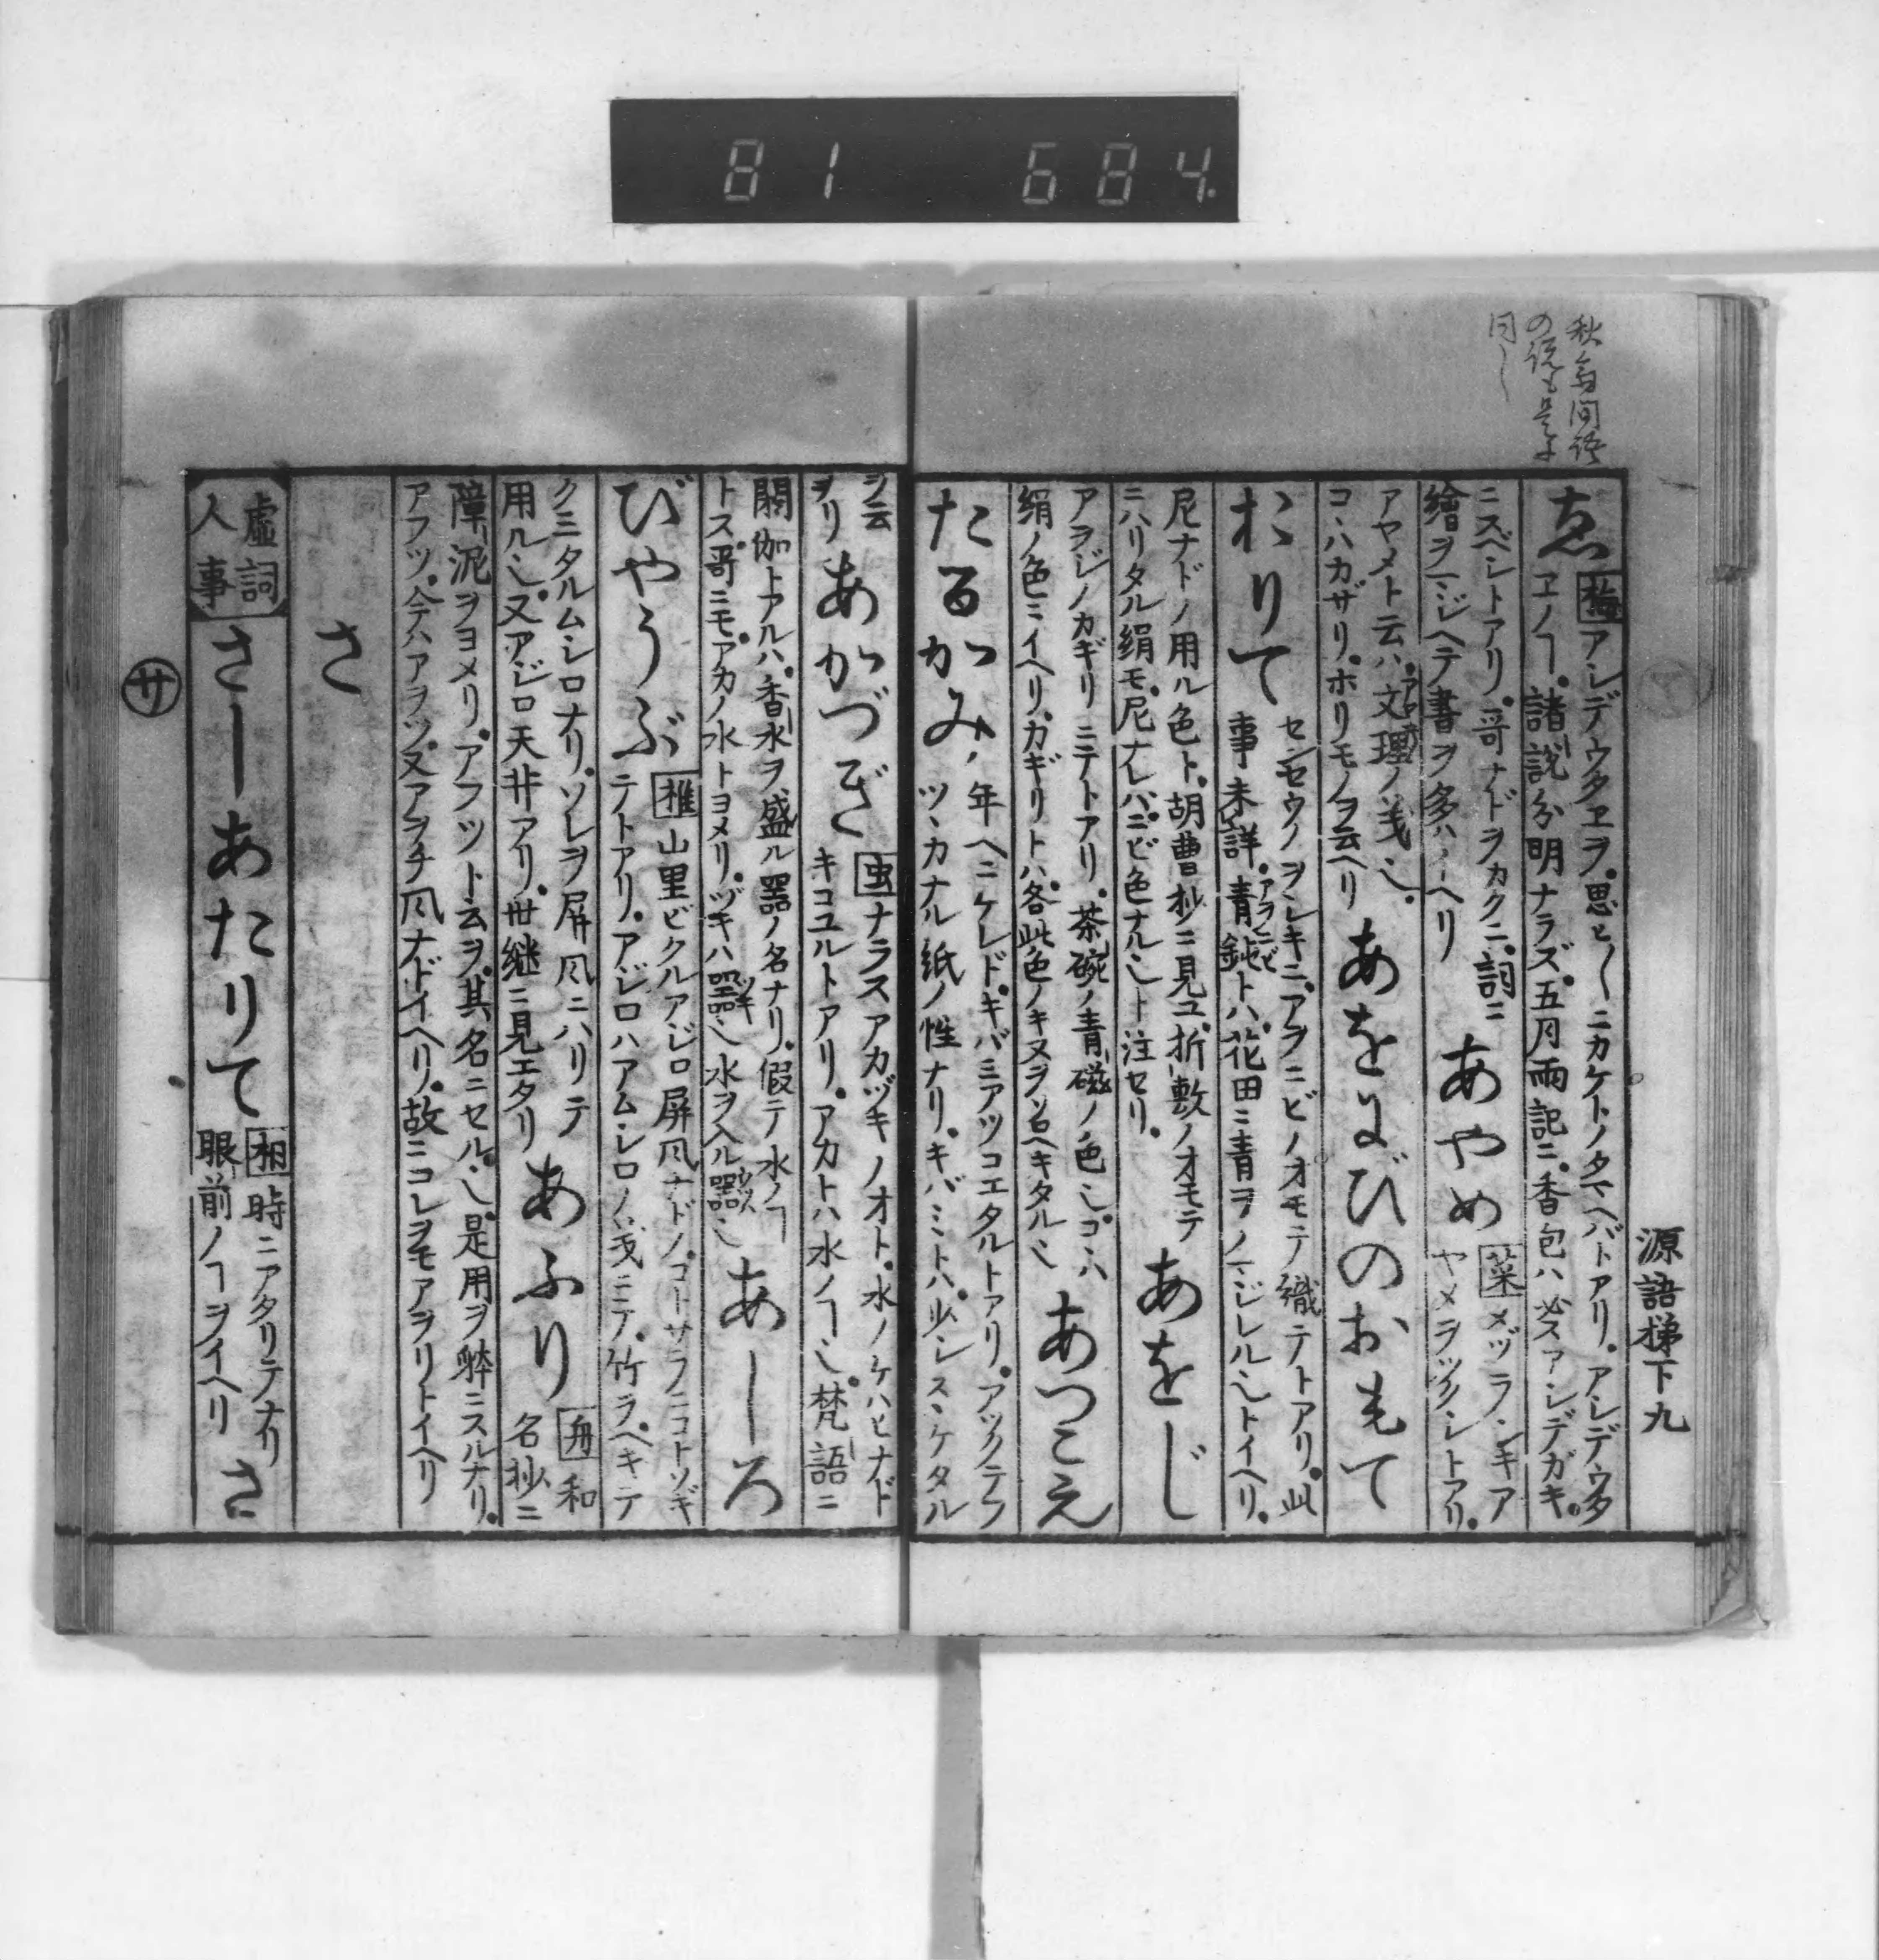 81 684.
秋
の説も
同じ
源語梯下 九
ゑ 梅 アシデウタヱヲ。思ヒ〱ニカケトノタマヘバトアリ。アシデウタ
ヱノヿ。諸説分明ナラズ。五月雨記ニ。香包ハ必スアシデガキ。
ニスベシトアリ。哥ナドヲカクニ。詞ニ
繪ヲマジヘテ書ヲ多ハイヘリ
あやめ 菜 メヅラシキア
ヤメヲツクシトアリ。
アヤメト云ハ。文理ノ義也。
コヽハカザリ。ホリモノヲ云ヘリ
あをにびのおもて
おりて センセウノヲシキニ。アヲニビノオモテ織テトアリ。此
事未詳。青鈍トハ。花田ニ青ヲノマジレル也トイヘリ。
尼ナドノ用ル色ト。胡曹抄ニ見ユ。折敷ノオモテ
ニハリタル絹モ。尼ナレバ。ニビ色ナル也ト注セリ。
あをじ
アヲジノカギリニテトアリ。茶碗ノ青磁ノ色也。コヽハ
絹ノ色ニイヘリ。カギリトハ。各此色ノキヌヲソロヘキタル也
あつこえ
たるかみ 年ヘニケレド。キバミアツコエタルトアリ。アツクテフ
ツヽカナル紙ノ性ナリ。キバミトハ。少シスヽケタル
ヲ云
ヲリ
あかづき 虫 ナラスアカヅキノオト。水ノケハヒナド
キコユルトアリ。アカトハ水ノヿ也。梵語ニ
閼伽トアルハ。香水ヲ盛ル器ノ名ナリ。假テ水ノヿ
トス。哥ニモ。アカノ水トヨメリ。ヅキハ器也水ヲ入ル器也
あじろ
びやうぶ 椎 山里ビタルアジロ屏風ナドノ。コトサラニコトソギ
テトアリ。アジロハアムシロノ義ニテ。竹ラヘキテ
クミタルムシロナリ。ソレヲ屏風ニハリテ
用ル也。又アジロ天井アリ。世継ニ見エタリ
あふり 舟 和
名抄ニ
障泥ヲヨメリ。アフツト云ヲ。其名ニセル也。是用ヲ躰ニスルナリ。
アフツ。今ハアヲツ。又アヲチ風ナドイヘリ。故ニコレヲモアヲリトイヘリ
さ
虚詞
人事
さしあたりて 相 時ニアタリテナリ
眼前ノヿヲイヘリ
さ
サ